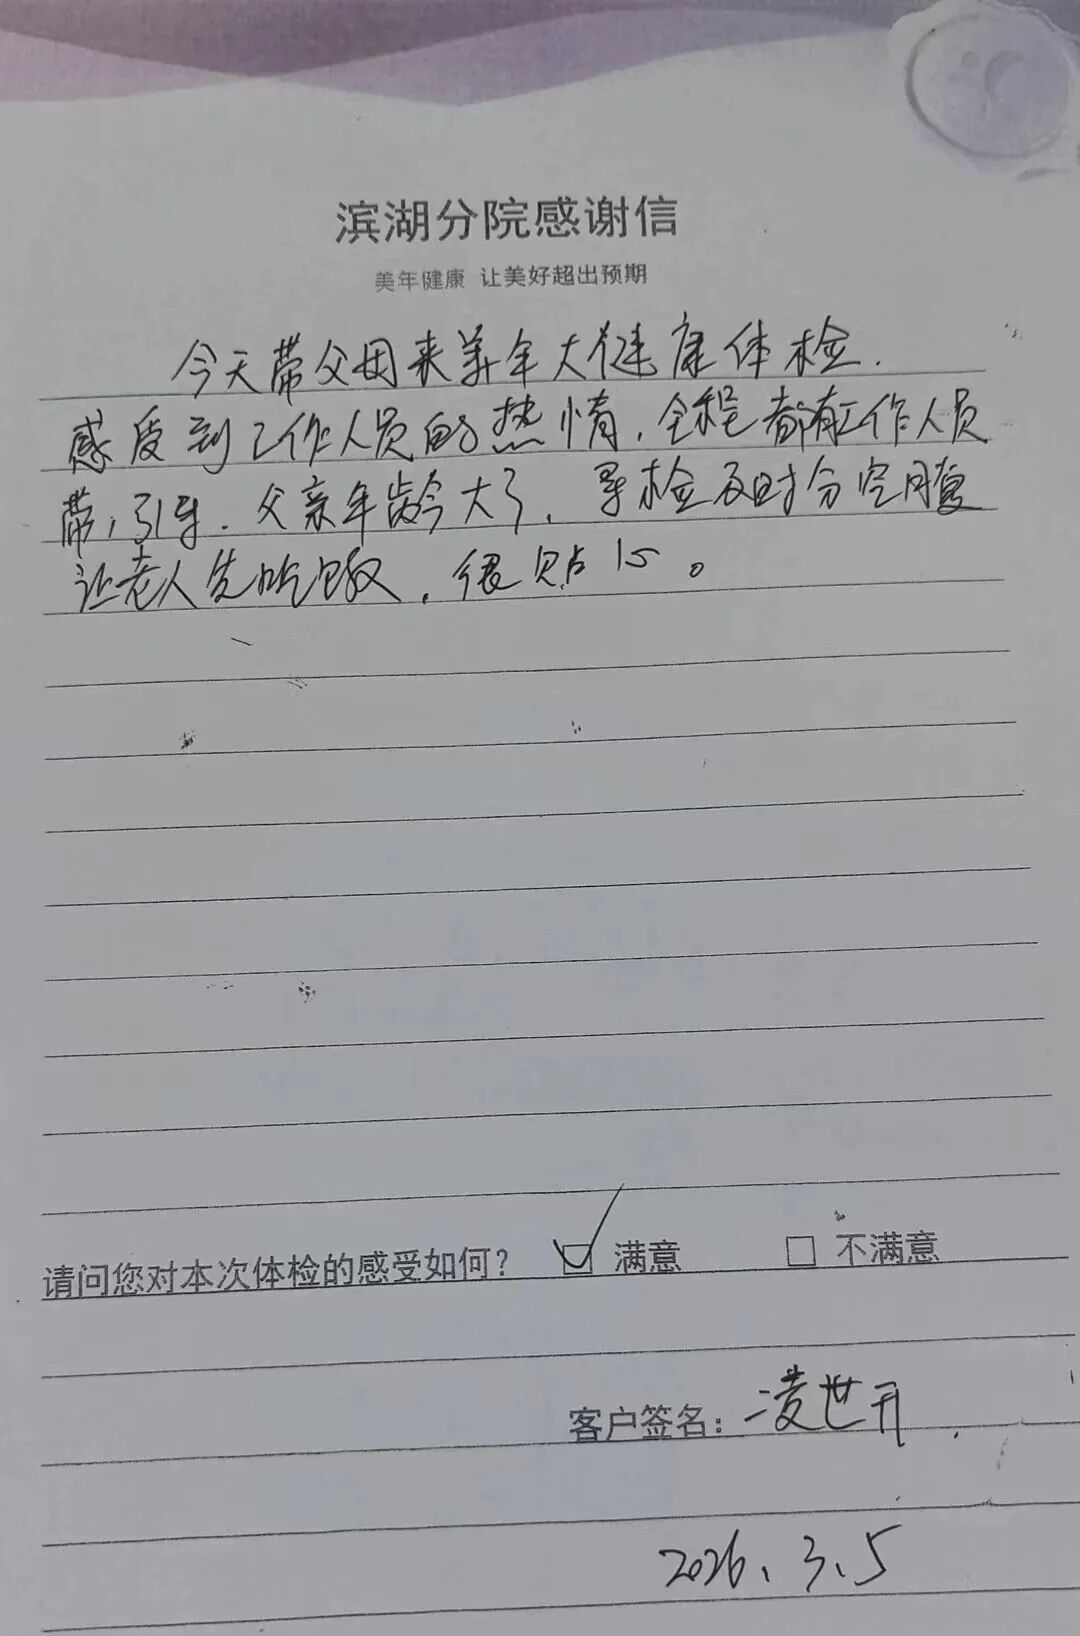 滨湖分院感谢信
美年健康 让美好超出预期
今天带父母来美年大健康体检.
感受到工作人员的热情,全程都有工作人员
带引导.父亲年龄大了,导检及时分空腹
让老人先吃饭,很贴心。
请问您对本次体检的感受如何? ☑ 满意 □ 不满意
客户签名: 凌世开
2026、3、5